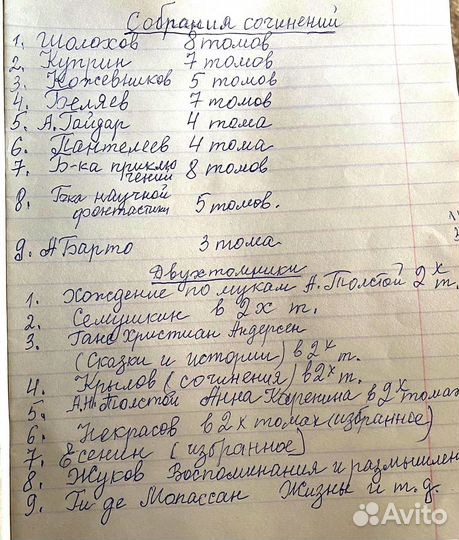 Собрания сочинений
1. Шолохов 8 томов
2. Куприн 7 томов
3. Кожевников 5 томов
4. Беляев 7 томов
5. А. Гайдар 4 тома
6. Пантелеев 4 тома
7. Б-ка приклю
чений 8 томов
8. Б-ка научной
фантастики 5 томов.
9. А Барто 3 тома
Двухтомники
1. Хождение по мукам А. Толстой 2х т.
2. Семушкин в 2х т.
3. Ганс Христиан Андерсен
(Сказки и истории) в 2х т.
4. Крылов (сочинения) в 2х т.
5. Толстой Анна Каренина в 2х томах
6. Некрасов в 2х томах (избранное)
7. Есенин (избранное)
8. Жуков Воспоминания и размышлен
9. Ги де Мопассан Жизнь и т.д.
Avito